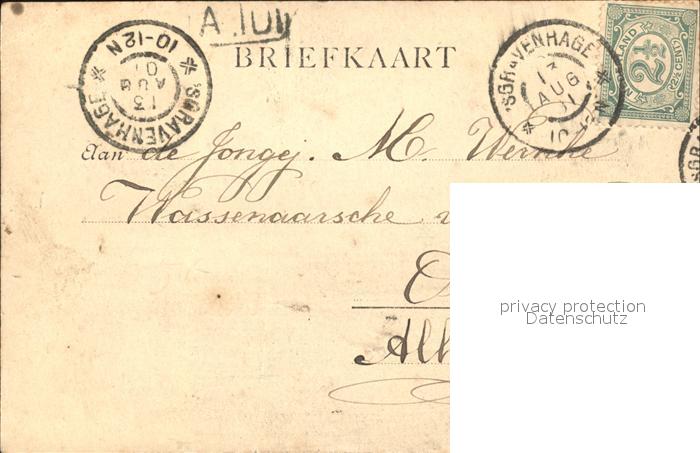 A. IUI
BRIEFKAART
'SGRAVENHAGE
10-12N
13
AUG
01
'SGRAVENHAGE
13
AUG
01
10-12N
2½
CENT
Aan de Jongej. M. Wernke
Wassenaarsche
All
privacy protection
Datenschutz